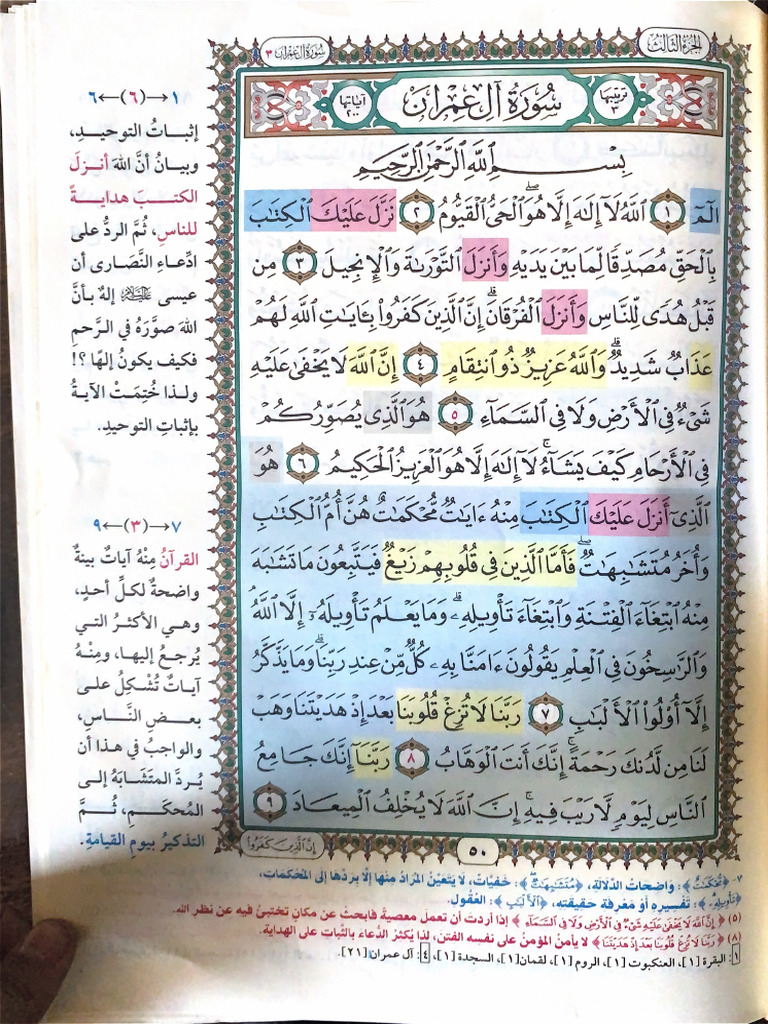 الجزء الثالث
سورة آل عمران ٣
ترتيبها ٣
سُورَةُ آلِ عِمْرَان
آياتها ٢٠٠
بِسْمِ اللَّهِ الرَّحْمَٰنِ الرَّحِيمِ
الٓمٓ ١ اللَّهُ لَا إِلَٰهَ إِلَّا هُوَ الْحَيُّ الْقَيُّومُ ٢ نَزَّلَ عَلَيْكَ الْكِتَابَ
بِالْحَقِّ مُصَدِّقًا لِّمَا بَيْنَ يَدَيْهِ وَأَنزَلَ التَّوْرَىٰةَ وَالْإِنجِيلَ ٣ مِن
قَبْلُ هُدًى لِّلنَّاسِ وَأَنزَلَ الْفُرْقَانَ ۗ إِنَّ الَّذِينَ كَفَرُوا بِـَٔايَاتِ اللَّهِ لَهُمْ
عَذَابٌ شَدِيدٌ ۗ وَاللَّهُ عَزِيزٌ ذُو انتِقَامٍ ٤ إِنَّ اللَّهَ لَا يَخْفَىٰ عَلَيْهِ
شَيْءٌ فِي الْأَرْضِ وَلَا فِي السَّمَاءِ ٥ هُوَ الَّذِي يُصَوِّرُكُمْ
فِي الْأَرْحَامِ كَيْفَ يَشَاءُ ۚ لَا إِلَٰهَ إِلَّا هُوَ الْعَزِيزُ الْحَكِيمُ ٦ هُوَ
الَّذِي أَنزَلَ عَلَيْكَ الْكِتَابَ مِنْهُ ءَايَاتٌ مُّحْكَمَاتٌ هُنَّ أُمُّ الْكِتَابِ
وَأُخَرُ مُتَشَابِهَاتٌ ۖ فَأَمَّا الَّذِينَ فِي قُلُوبِهِمْ زَيْغٌ فَيَتَّبِعُونَ مَا تَشَابَهَ
مِنْهُ ابْتِغَاءَ الْفِتْنَةِ وَابْتِغَاءَ تَأْوِيلِهِ ۗ وَمَا يَعْلَمُ تَأْوِيلَهُ إِلَّا اللَّهُ
وَالرَّاسِخُونَ فِي الْعِلْمِ يَقُولُونَ ءَامَنَّا بِهِ كُلٌّ مِّنْ عِندِ رَبِّنَا ۗ وَمَا يَذَّكَّرُ
إِلَّا أُوْلُوا الْأَلْبَابِ ٧ رَبَّنَا لَا تُزِغْ قُلُوبَنَا بَعْدَ إِذْ هَدَيْتَنَا وَهَبْ
لَنَا مِن لَّدُنكَ رَحْمَةً ۚ إِنَّكَ أَنتَ الْوَهَّابُ ٨ رَبَّنَا إِنَّكَ جَامِعُ
النَّاسِ لِيَوْمٍ لَّا رَيْبَ فِيهِ ۚ إِنَّ اللَّهَ لَا يُخْلِفُ الْمِيعَادَ ٩
إِنَّ الَّذِينَ كَفَرُوا
٥٠
١→(٦)←٦
إثباتُ التوحيدِ،
وبيانُ أنَّ اللهَ أنزلَ
الكتبَ هدايةً
للناسِ، ثُمَّ الردُّ على
ادِّعاءِ النَّصَارى أن
عيسى عليه السلام إلهٌ بأنَّ
اللهَ صوَّرَهُ في الرَّحمِ
فكيف يكونُ إلهًا ؟!
ولذا خُتِمَتْ الآيةُ
بإثباتِ التوحيدِ.
٧→(٣)←٩
القرآنُ مِنْهُ آياتٌ بينةٌ
واضحةٌ لكلِّ أحدٍ،
وهي الأكثرُ التي
يُرجعُ إليها، ومِنْهُ
آياتٌ تُشْكِلُ على
بعضِ النَّاسِ،
والواجبُ في هذا أن
يُردَّ المتَشَابَهُ إلى
المُحكَمِ، ثُمَّ
التذكيرُ بيومِ القيامةِ.
٧- ﴿مُّحْكَمَاتٌ﴾: وَاضِحَاتُ الدَّلَالَةِ، ﴿مُتَشَابِهَاتٌ﴾: خَفِيَّاتٌ، لَا يَتَعَيَّنُ المُرَادُ مِنْهَا إلَّا بِرَدِّهَا إلَى المُحْكَمَاتِ،
﴿تَأْوِيلِهِ﴾: تَفْسِيرِهِ أَوْ مَعْرِفَةِ حَقِيقَتِهِ، ﴿الْأَلْبَابِ﴾: العُقُولِ.
(٥) ﴿إِنَّ اللَّهَ لَا يَخْفَىٰ عَلَيْهِ شَيْءٌ فِي الْأَرْضِ وَلَا فِي السَّمَاءِ﴾ إذا أردت أن تعمل معصيةً فابحث عن مكانٍ تختبئ فيه عن نظرِ الله.
(٨) ﴿رَبَّنَا لَا تُزِغْ قُلُوبَنَا بَعْدَ إِذْ هَدَيْتَنَا﴾ لا يأمنُ المؤمنُ على نفسه الفتن، لذا يُكثرُ الدُّعاء بالثَّباتِ على الهداية.
١: البقرة [١]، العنكبوت [١]، الروم [١]، لقمان [١]، السجدة [١]، ٤: آل عمران [٢١].